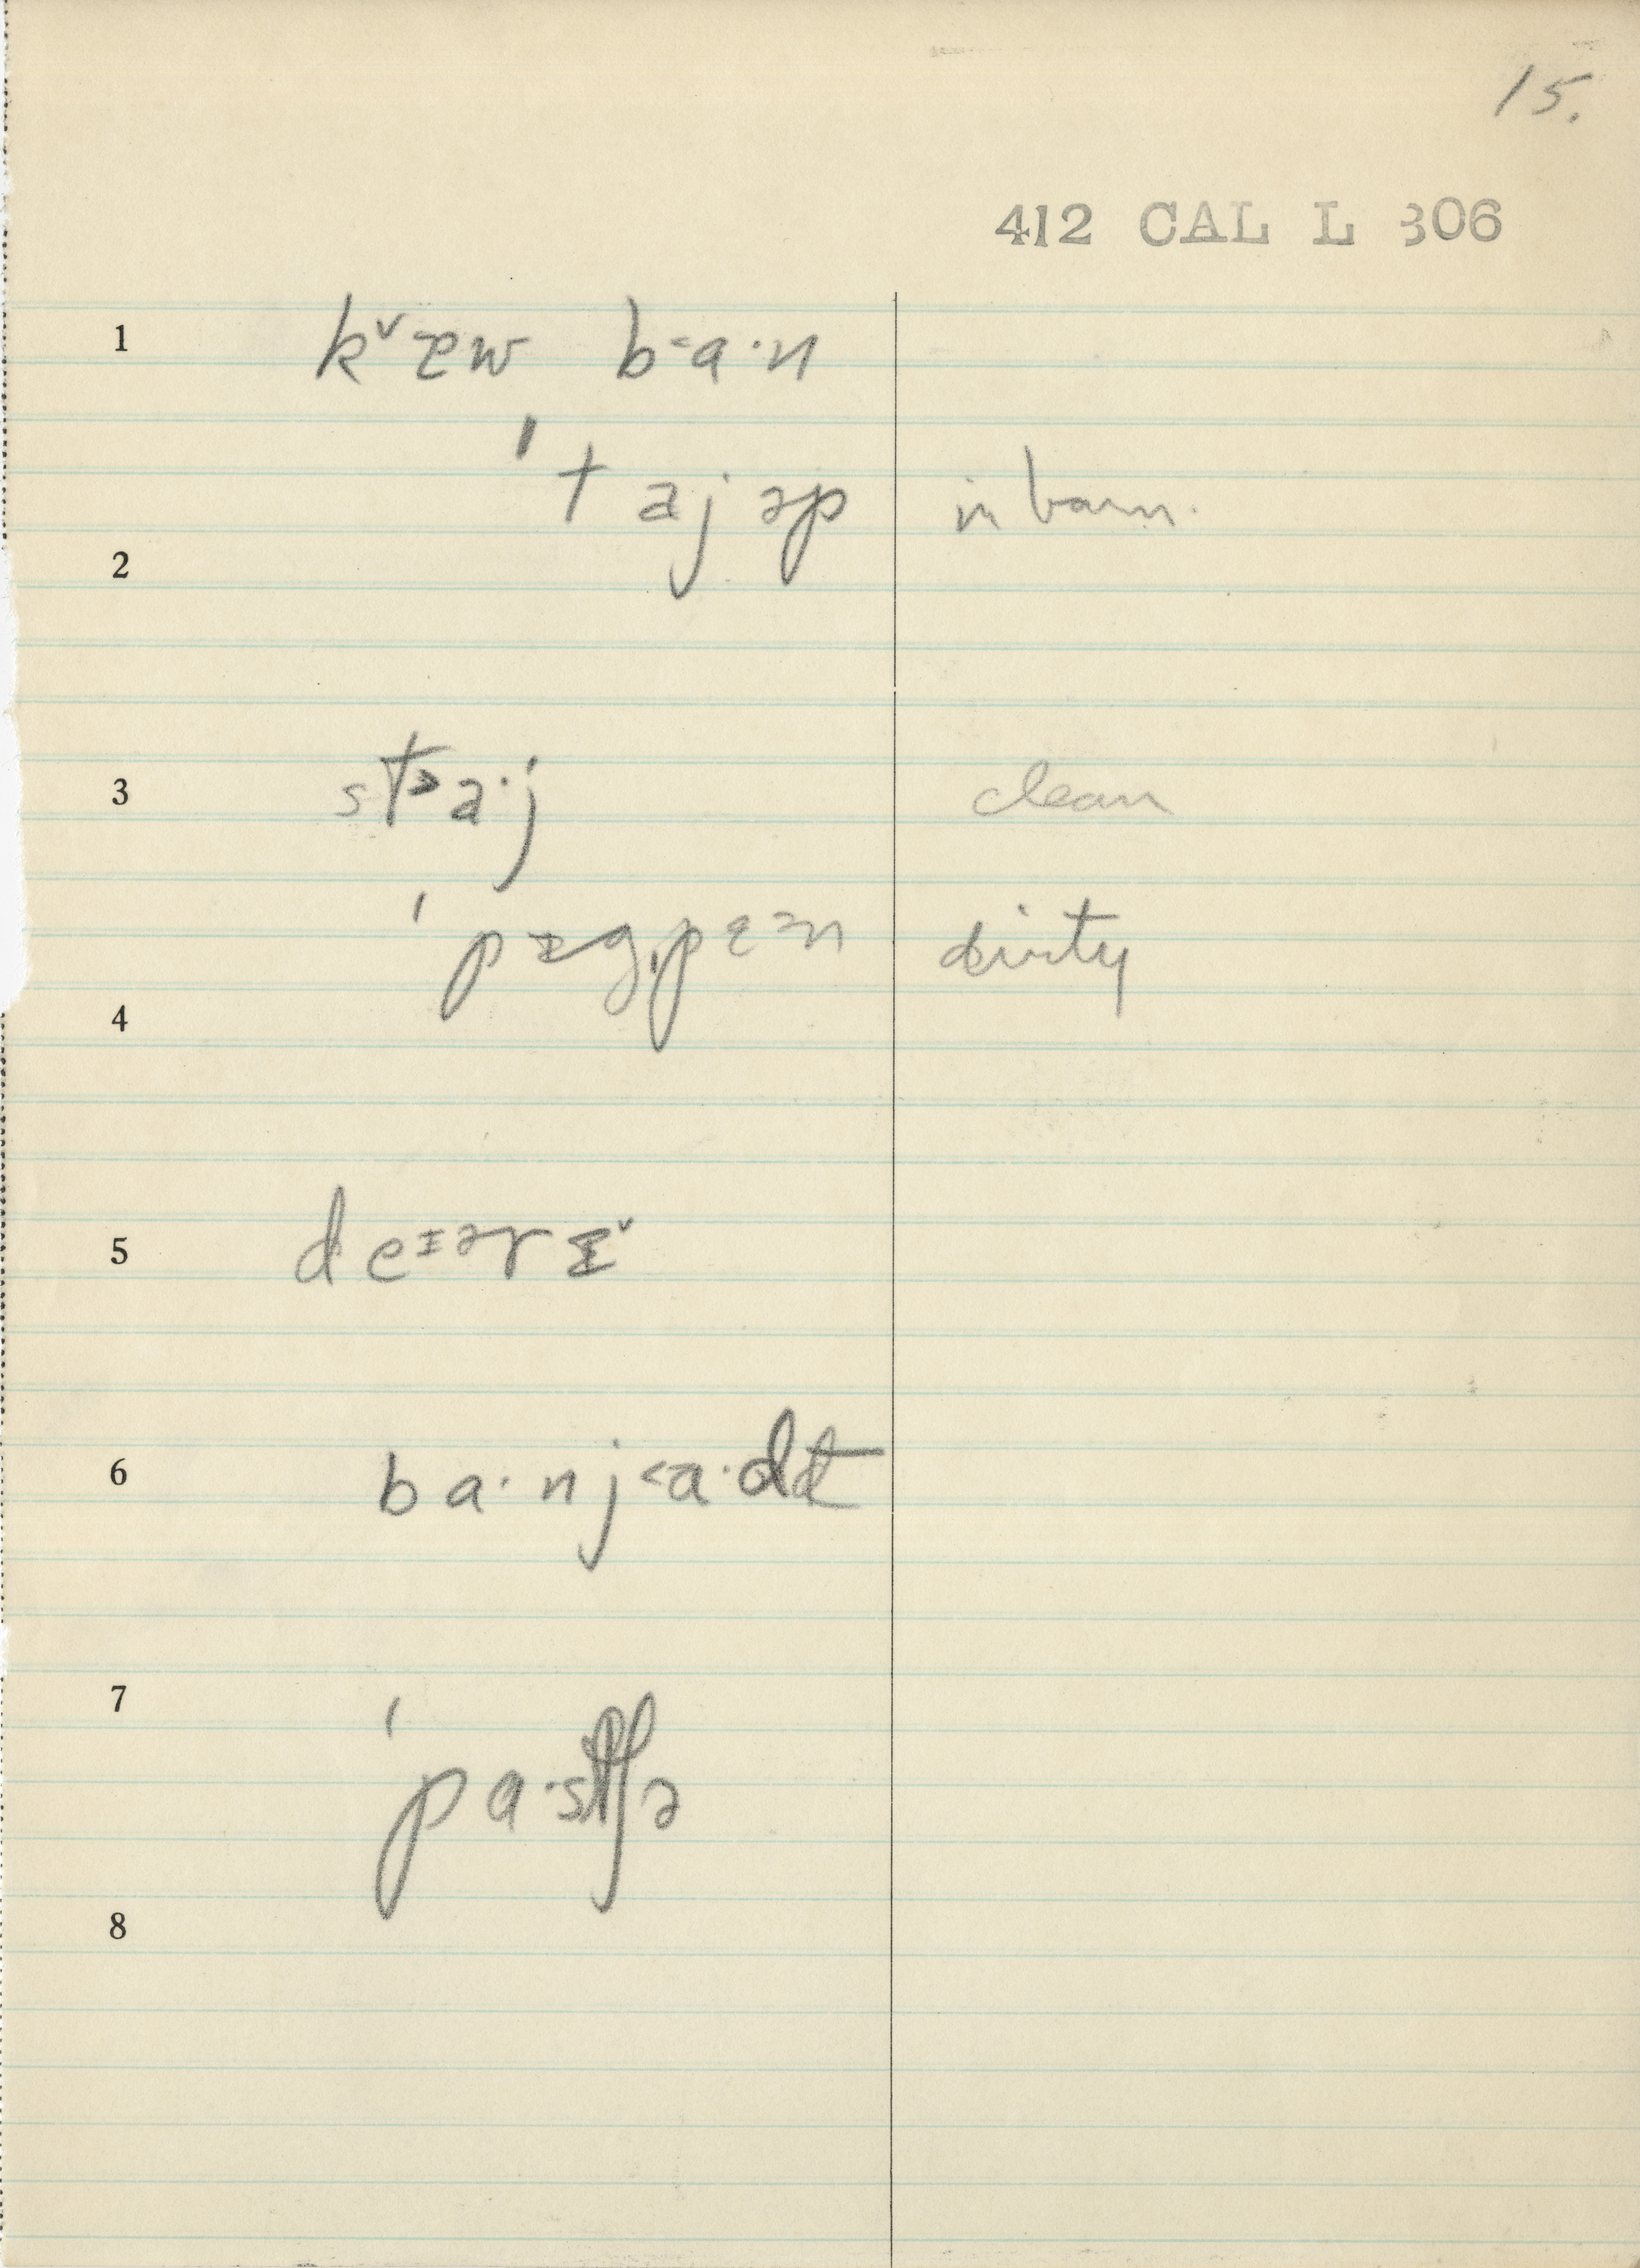 15.
412 CAL L 306
1 kᵛæw b˂a·n
ˈtajəp in barn.
2
3 st˃a·j clean
ˈpɪgˌpɛᵊn dirty
4
5 deᶦᵊrɪᵛ
6 ba·nj˂a·d
7 ˈpa·stʃə
8